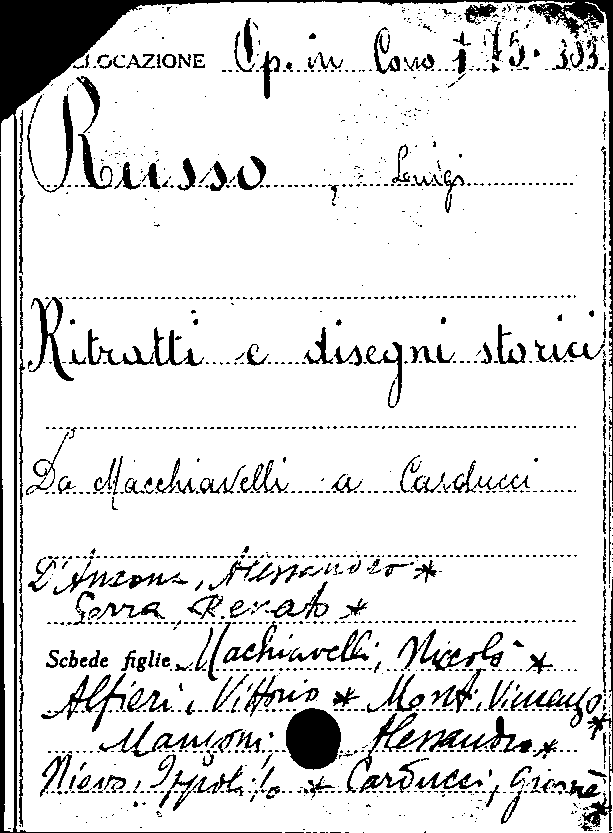 LOCAZIONE Op. in Corso 175. 383
Russo, Luigi
Ritratti e disegni storici
Da Macchiavelli a Carducci
D'Ancona, Alessandro *
Serra, Renato *
Schede figlie Machiavelli, Nicolò *
Alfieri, Vittorio * Monti, Vincenzo *
Manzoni, Alessandro *
Nievo, Ippolito * Carducci, Giosuè *